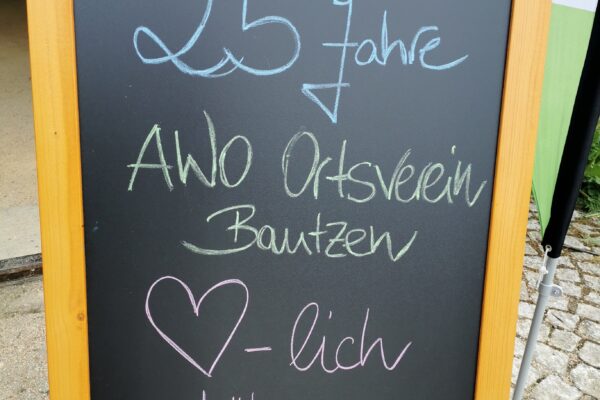 25 Jahre
AWO Ortsverein
Bautzen
♡-lich